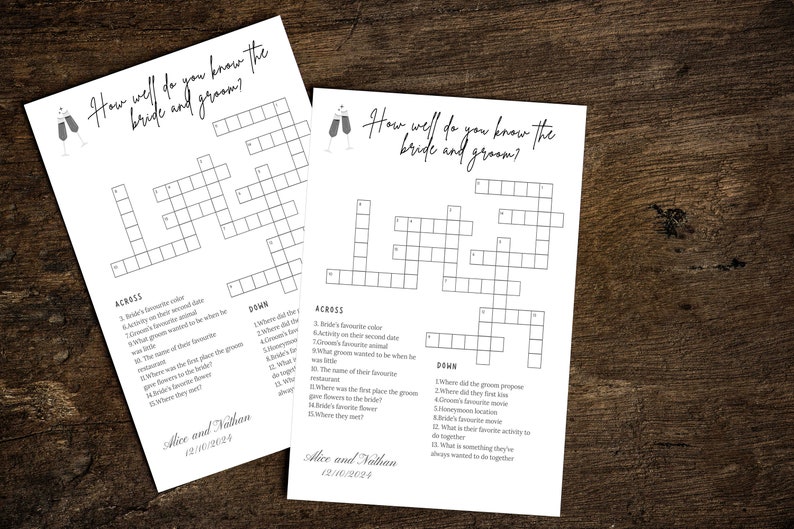 How well do you know the
bride and groom?
ACROSS
3. Bride's favourite color
6.Activity on their second date
7.Groom's favourite animal
9.What groom wanted to be when he
was little
10. The name of their favourite
restaurant
11.Where was the first place the groom
gave flowers to the bride?
14.Bride's favorite flower
15.Where they met?
DOWN
1.Where did the
2.Where did the
4.Groom's favou
5.Honeymoon
8.Bride's favou
12. What is th
do together
13. What
always
Alice and Nathan
12/10/2024
How well do you know the
bride and groom?
ACROSS
3. Bride's favourite color
6.Activity on their second date
7.Groom's favourite animal
9.What groom wanted to be when he
was little
10. The name of their favourite
restaurant
11.Where was the first place the groom
gave flowers to the bride?
14.Bride's favorite flower
15.Where they met?
DOWN
1.Where did the groom propose
2.Where did they first kiss
4.Groom's favourite movie
5.Honeymoon location
8.Bride's favourite movie
12. What is their favorite activity to
do together
13. What is something they've
always wanted to do together
Alice and Nathan
12/10/2024